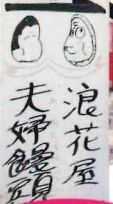 浪花屋
夫婦饅頭